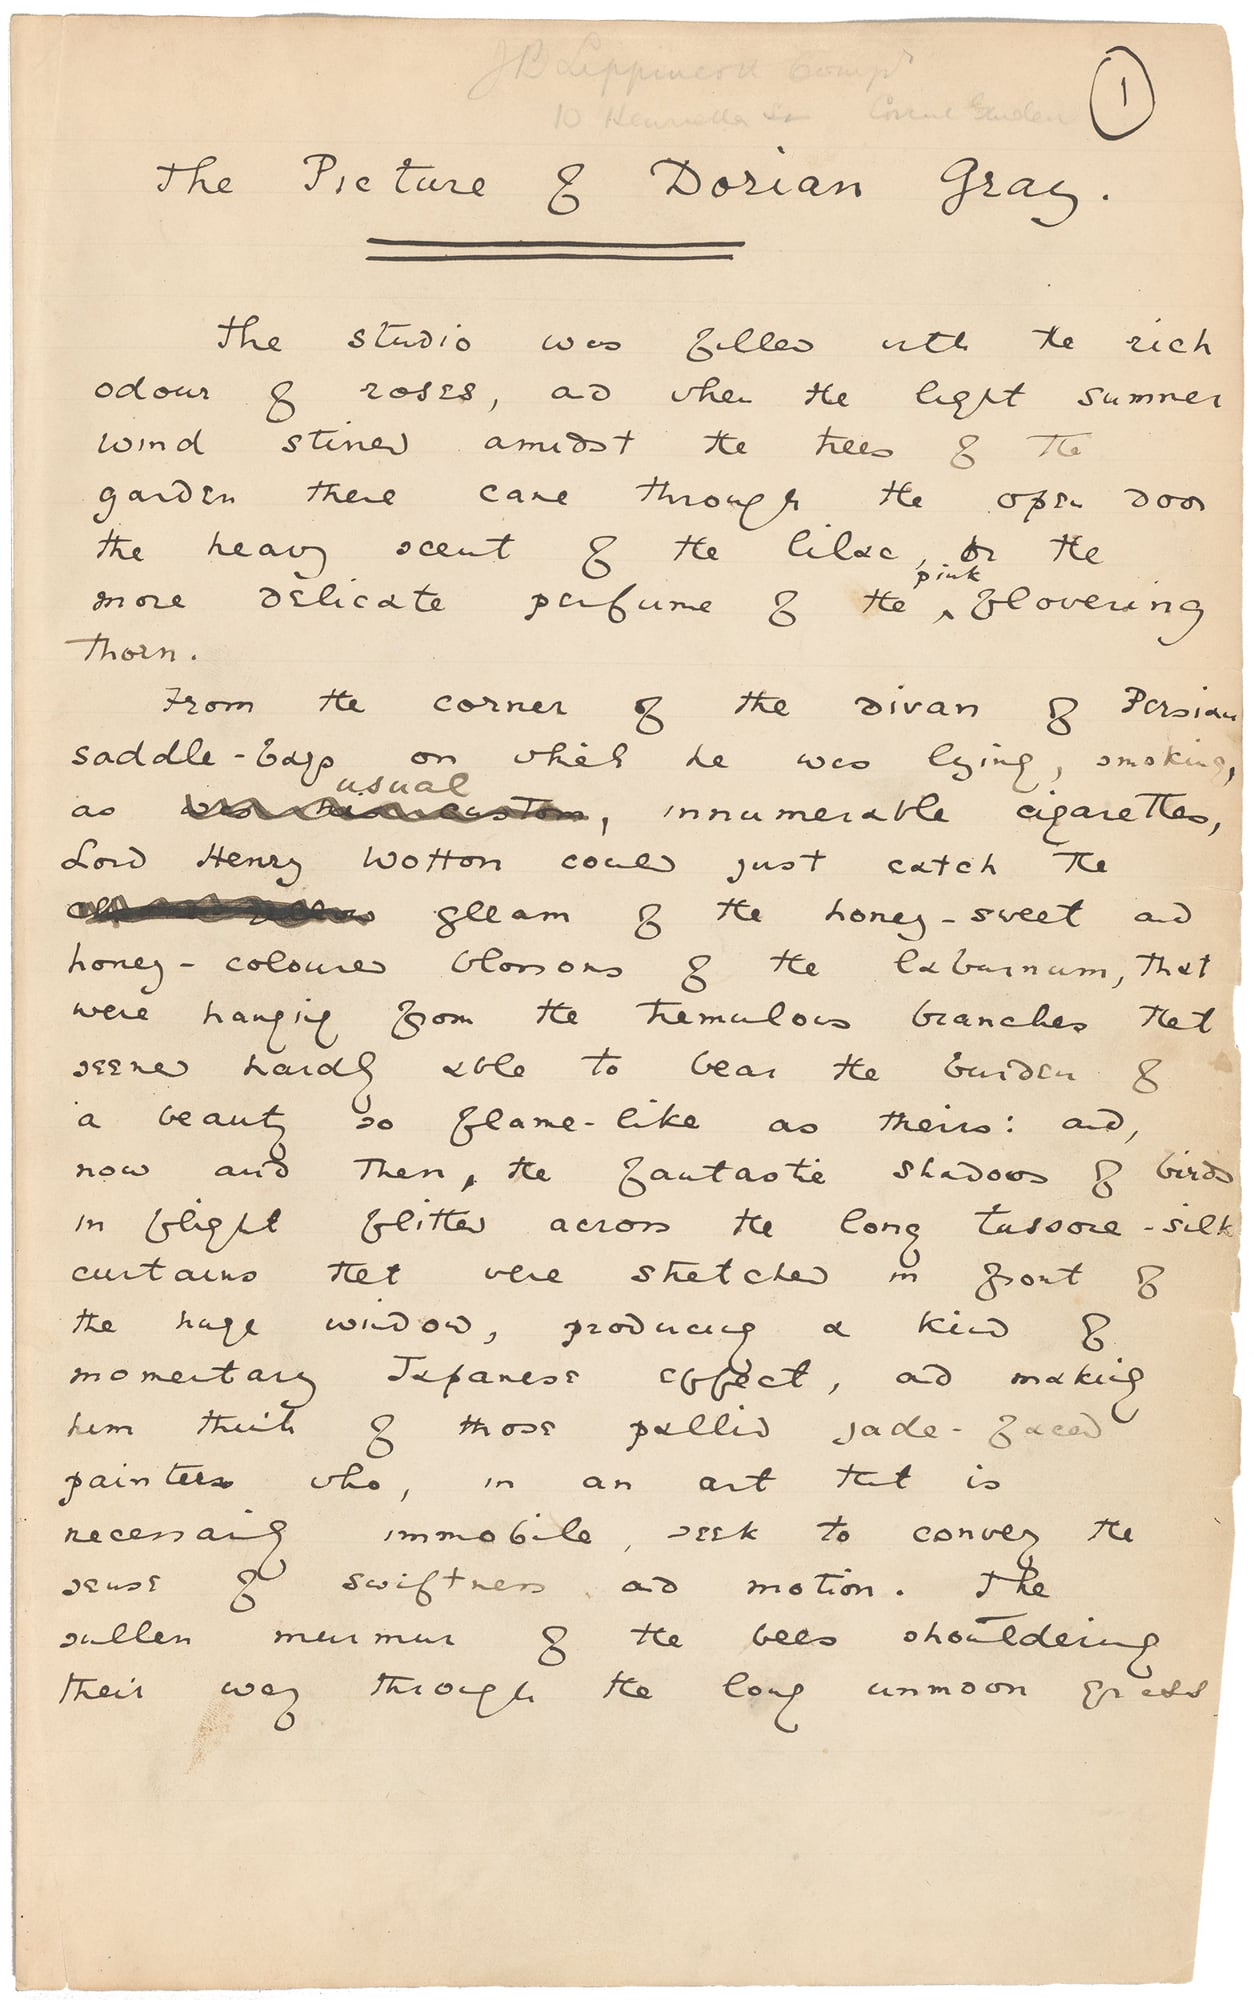 J B Lippincott Compy
10 Henrietta St Covent Garden
1
The Picture of Dorian Gray.
The studio was filled with the rich
odour of roses, and when the light summer
wind stirred amidst the trees of the
garden there came through the open door
the heavy scent of the lilac, or the
pink
more delicate perfume of the ‸ flowering
thorn.
From the corner of the divan of Persian
saddle-bags on which he was lying, smoking,
usual
as was his custom, innumerable cigarettes,
Lord Henry Wotton could just catch the
gleam of the honey-sweet and
honey-coloured blossoms of the laburnum, that
were hanging from the tremulous branches that
seemed hardly able to bear the burden of
a beauty so flame-like as theirs: and,
now and then, the fantastic shadows of birds
in flight flitted across the long tussore-silk
curtains that were stretched in front of
the huge window, producing a kind of
momentary Japanese effect, and making
him think of those pallid jade-faced
painters who, in an art that is
necessarily immobile, seek to convey the
sense of swiftness and motion. The
sullen murmur of the bees shouldering
their way through the long unmoon grass